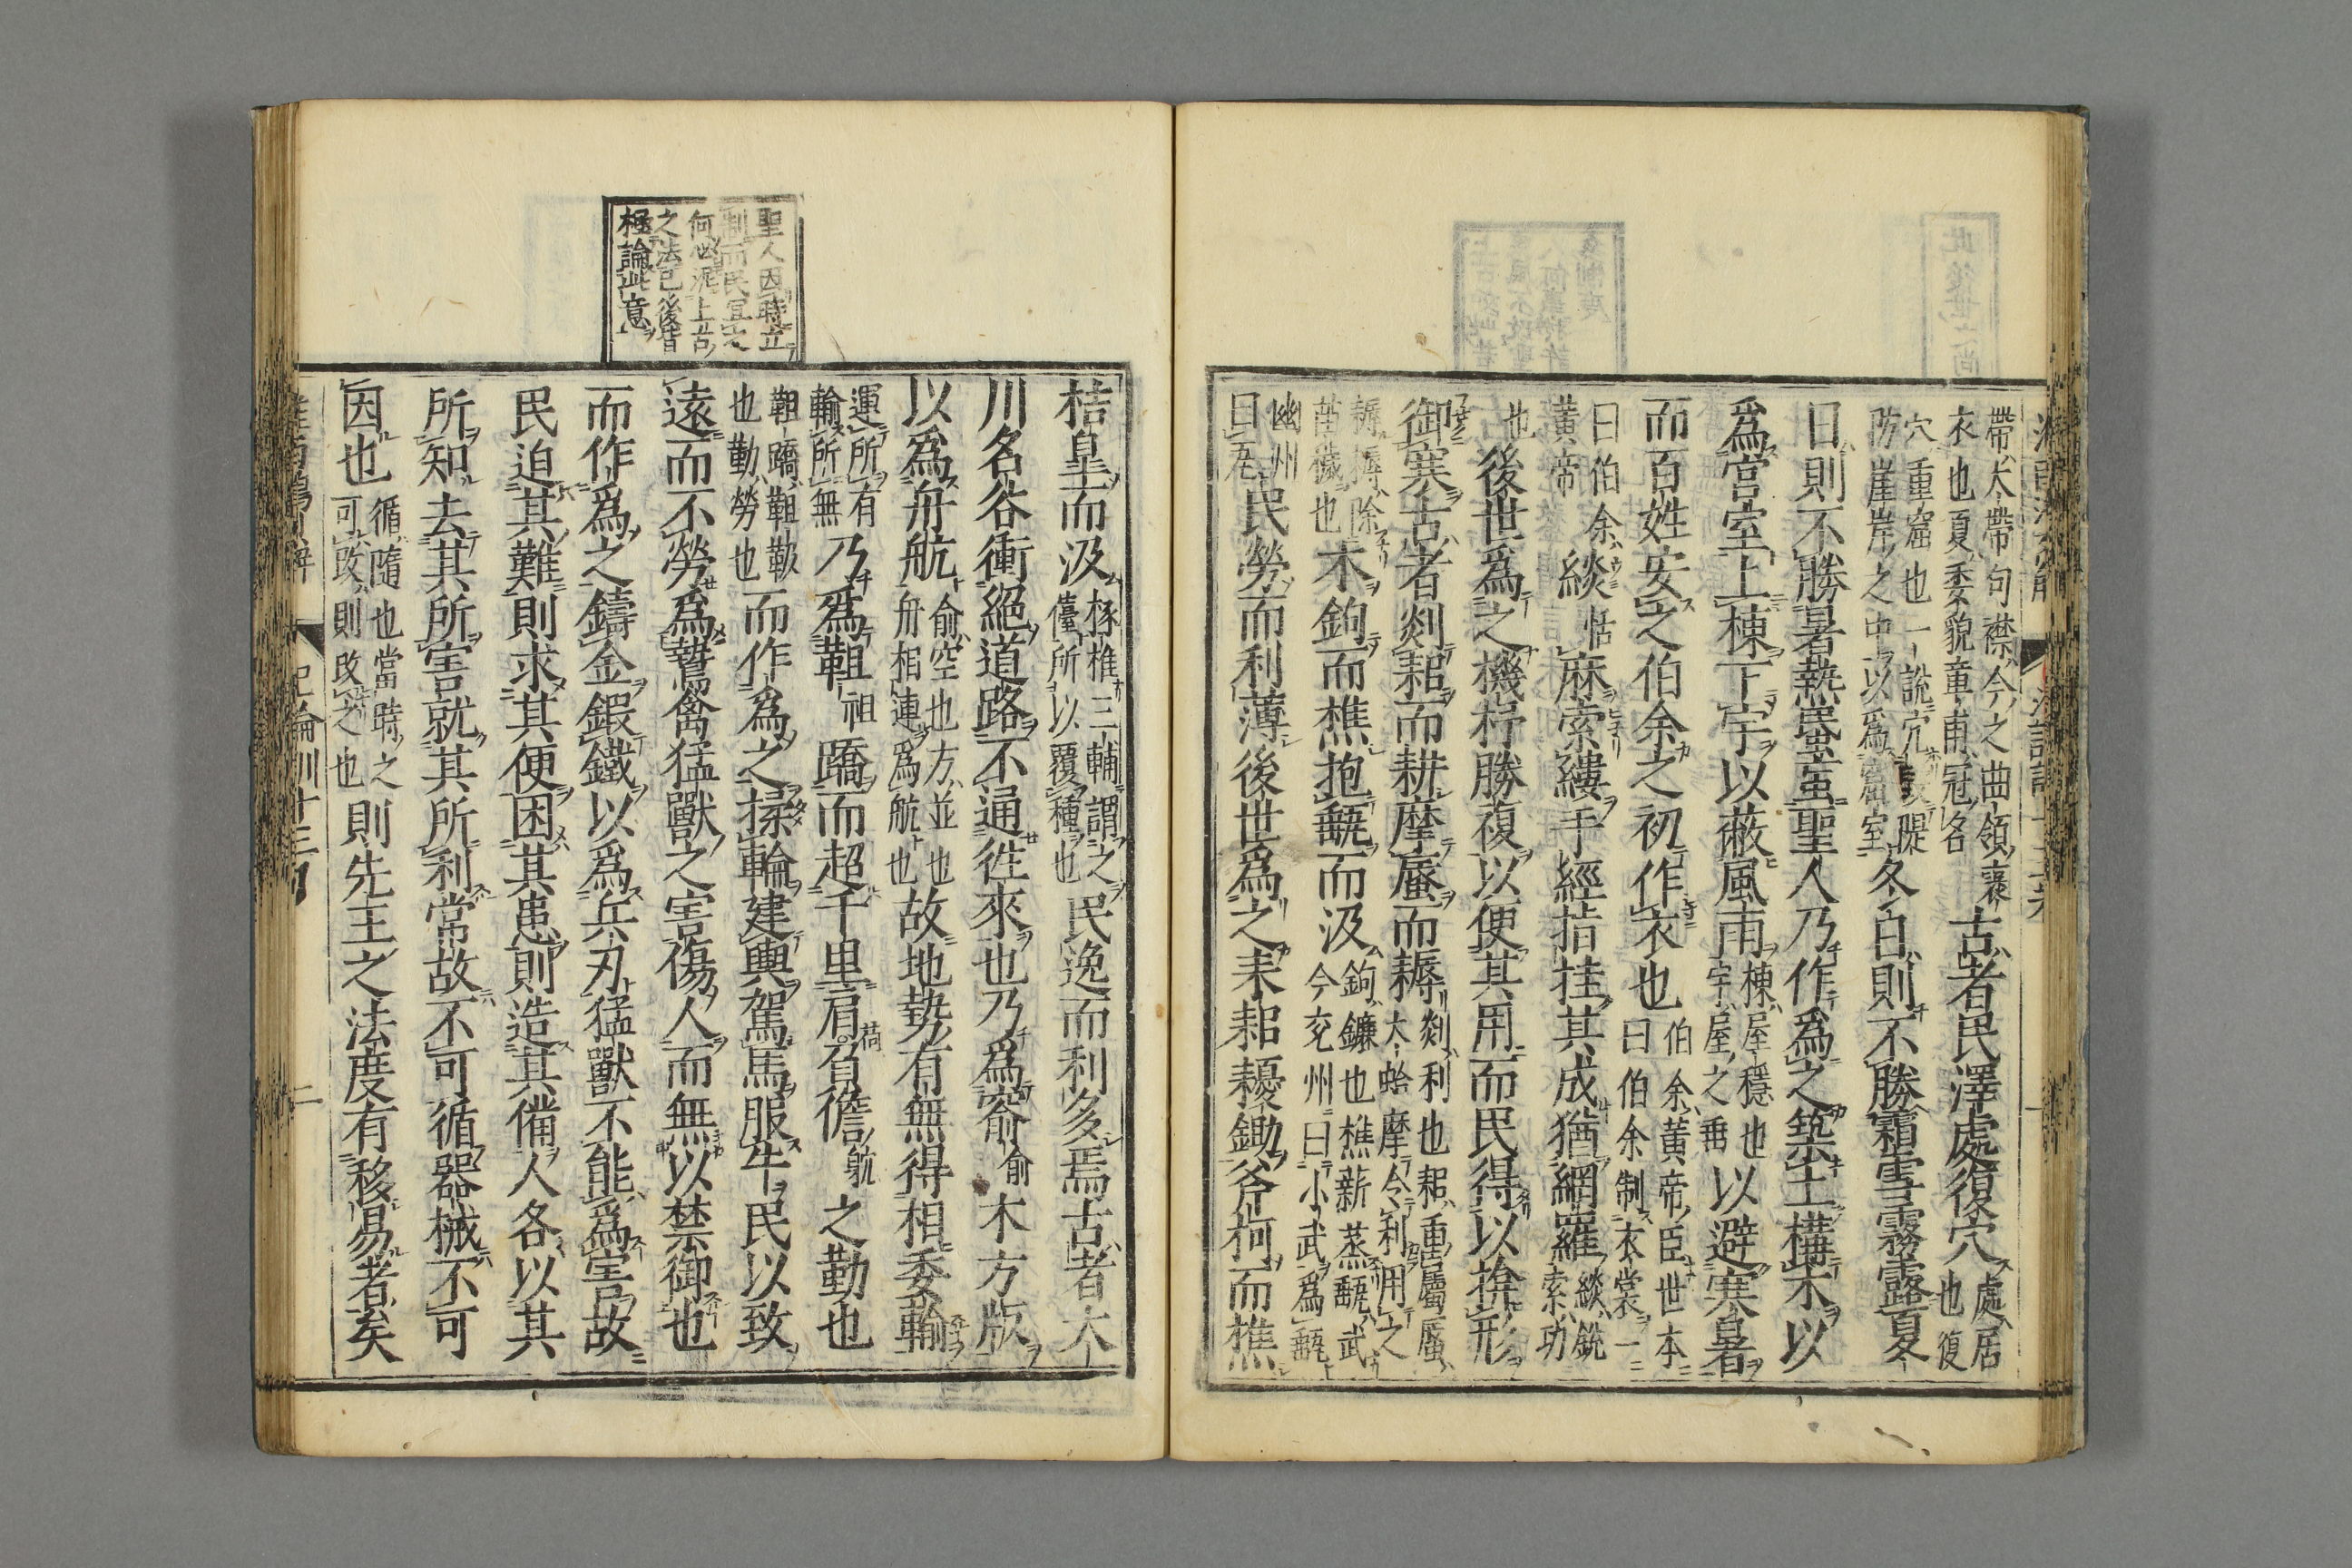 帶大帶句襟今之曲領褒
衣也夏委貌章甫冠名
古者民澤處復穴
處居
也復
穴重窟也一說穴
防崖岸之中以爲窟室
冬日則不勝霜雪霧露夏
日則不勝暑熱蟁䖟聖人乃作爲之築土構木以
爲宮室上棟下宇以蔽風雨
棟屋穩也
宇屋之垂
以避寒暑
而百姓安之伯余之初作衣也
伯余黃帝臣世本
曰伯余制衣裳一
曰伯余
黃帝
緂
恬
麻索縷手經指挂其成猶網羅
緂銳
索功
也
後世爲之機杼勝複以便其用而民得以揜形
御寒古者剡耜而耕摩蜃而耨
剡利也耜臿屬蜃
大蛤摩令利用之
耨耨除
苗穢也
木鉤而樵抱甀而汲
鉤鐮也樵薪蒸甀武
今兗州曰小武爲甀
幽州
曰瓦
民勞而利薄後世爲之耒耜耰鋤斧柯而樵
聖人因時立
制而民宜之
何必泥上古
之法已後皆
極論此意
桔皋而汲
椓椎三輔謂之
儓所以覆種也
民逸而利多焉古者大
川名谷衝絕道路不通徃來也乃爲窬
俞
木方版
以爲舟航
俞空也方並也
舟相連爲航也
故地勢有無得相委輸
運所有
輸所無
乃爲靻
祖
蹻而超千里肩
荷
負儋
航
之勤也
靻蹻靻䩕
也勤勞也
而作爲之揉輪建輿駕馬服牛民以致
遠而不勞爲鷙禽猛獸之害傷人而無以禁御也
而作爲之鑄金鍜鐵以爲兵刃猛獸不能爲害故
民迫其難則求其便困其患則造其備人各以其
所知去其所害就其所利常故不可循器械不可
因也
循隨也當時之
可改則改之也
則先王之法度有移易者矣